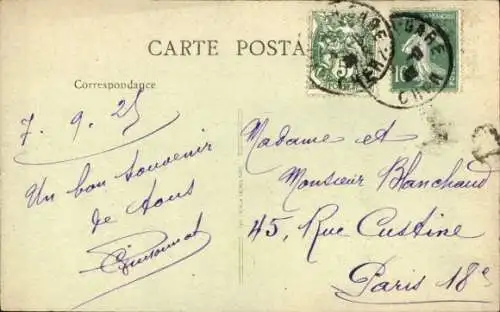 CARTE POSTA
Correspondance
7.9.25
Un bon souvenir
de tous
Madame et
Monsieur Blanchaud
45, Rue Custine
Paris 18e
5
10
GARE
GARE
CHER